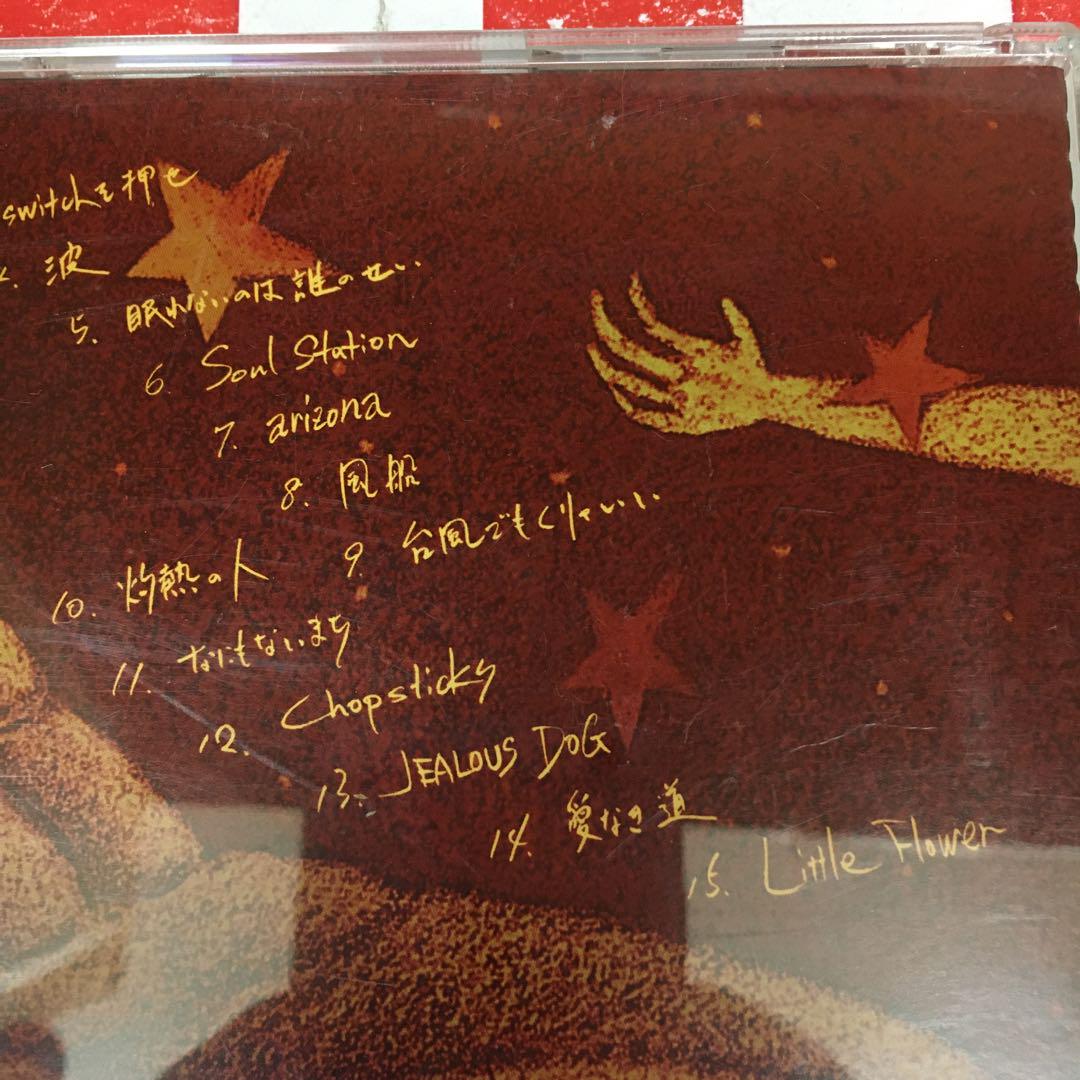 switchを押せ
波
5. 眠れないのは誰のせい
6. Soul Station
7. arizona
8. 風船
9. 台風でもくりゃいい
10. 灼熱の人
11. なにもないまち
12. Chopsticks
13. JEALOUS DOG
14. 愛なき道
15. Little Flower